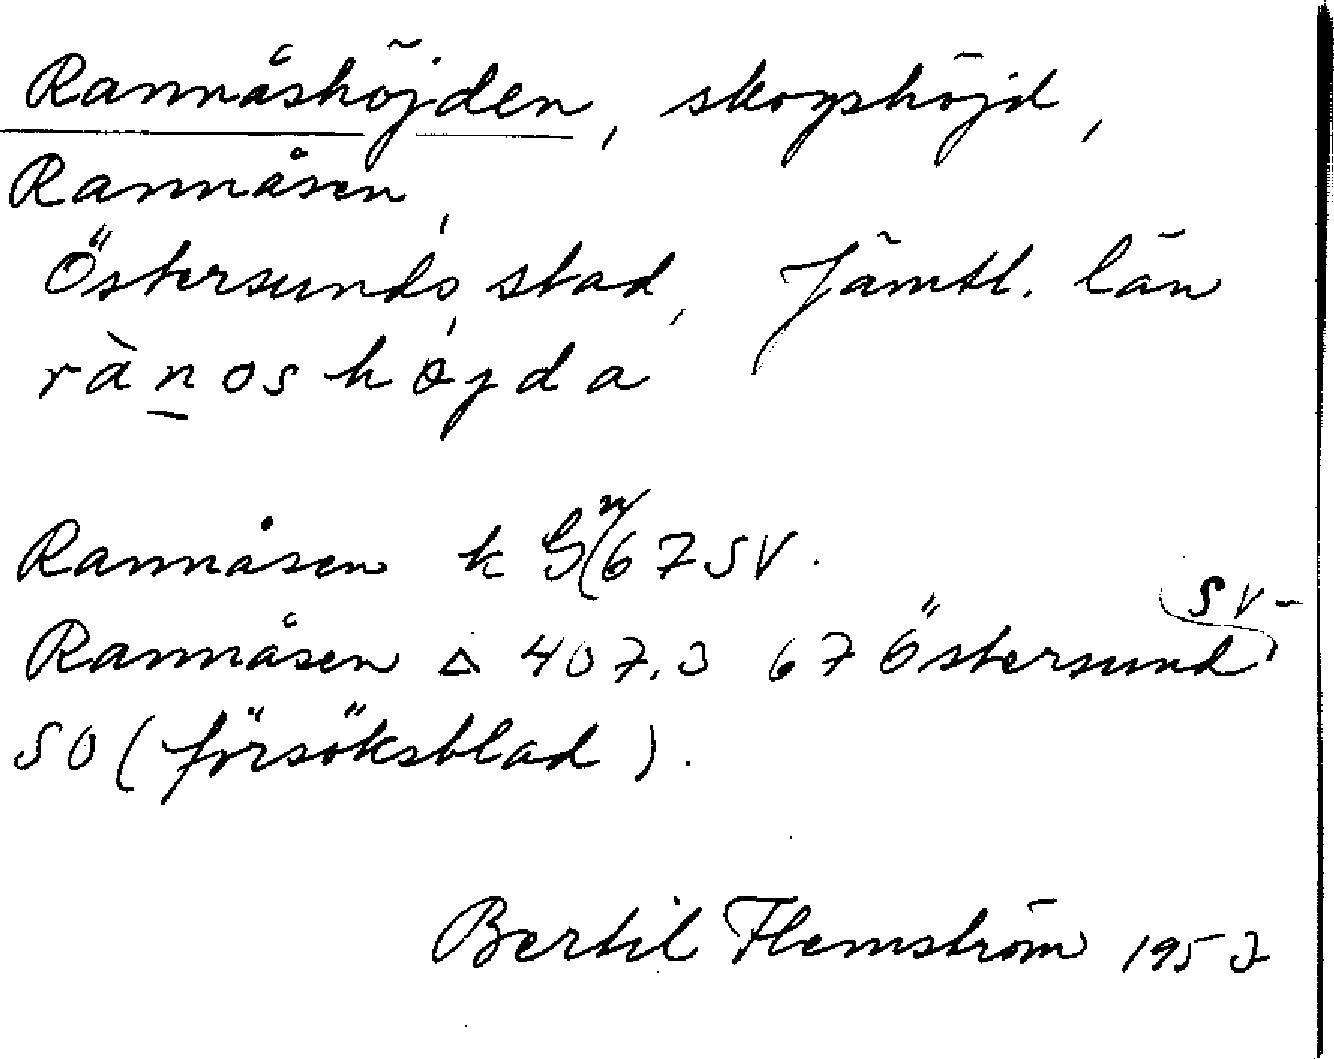 Rannåshöjden, skogshöjd,
Rannåsen,
Östersunds stad, Jämtl. län
rànoshöjda
Rannåsen k G(n67SV.
Rannåsen △ 407,3 67 Östersund SV-
SO (försöksblad).
Bertil Flemström 1952